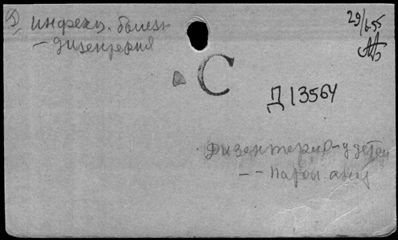 инфекц. болезн
– дизентерия
29/6-55
С
Д 13564
дизентерия - у детей
– –